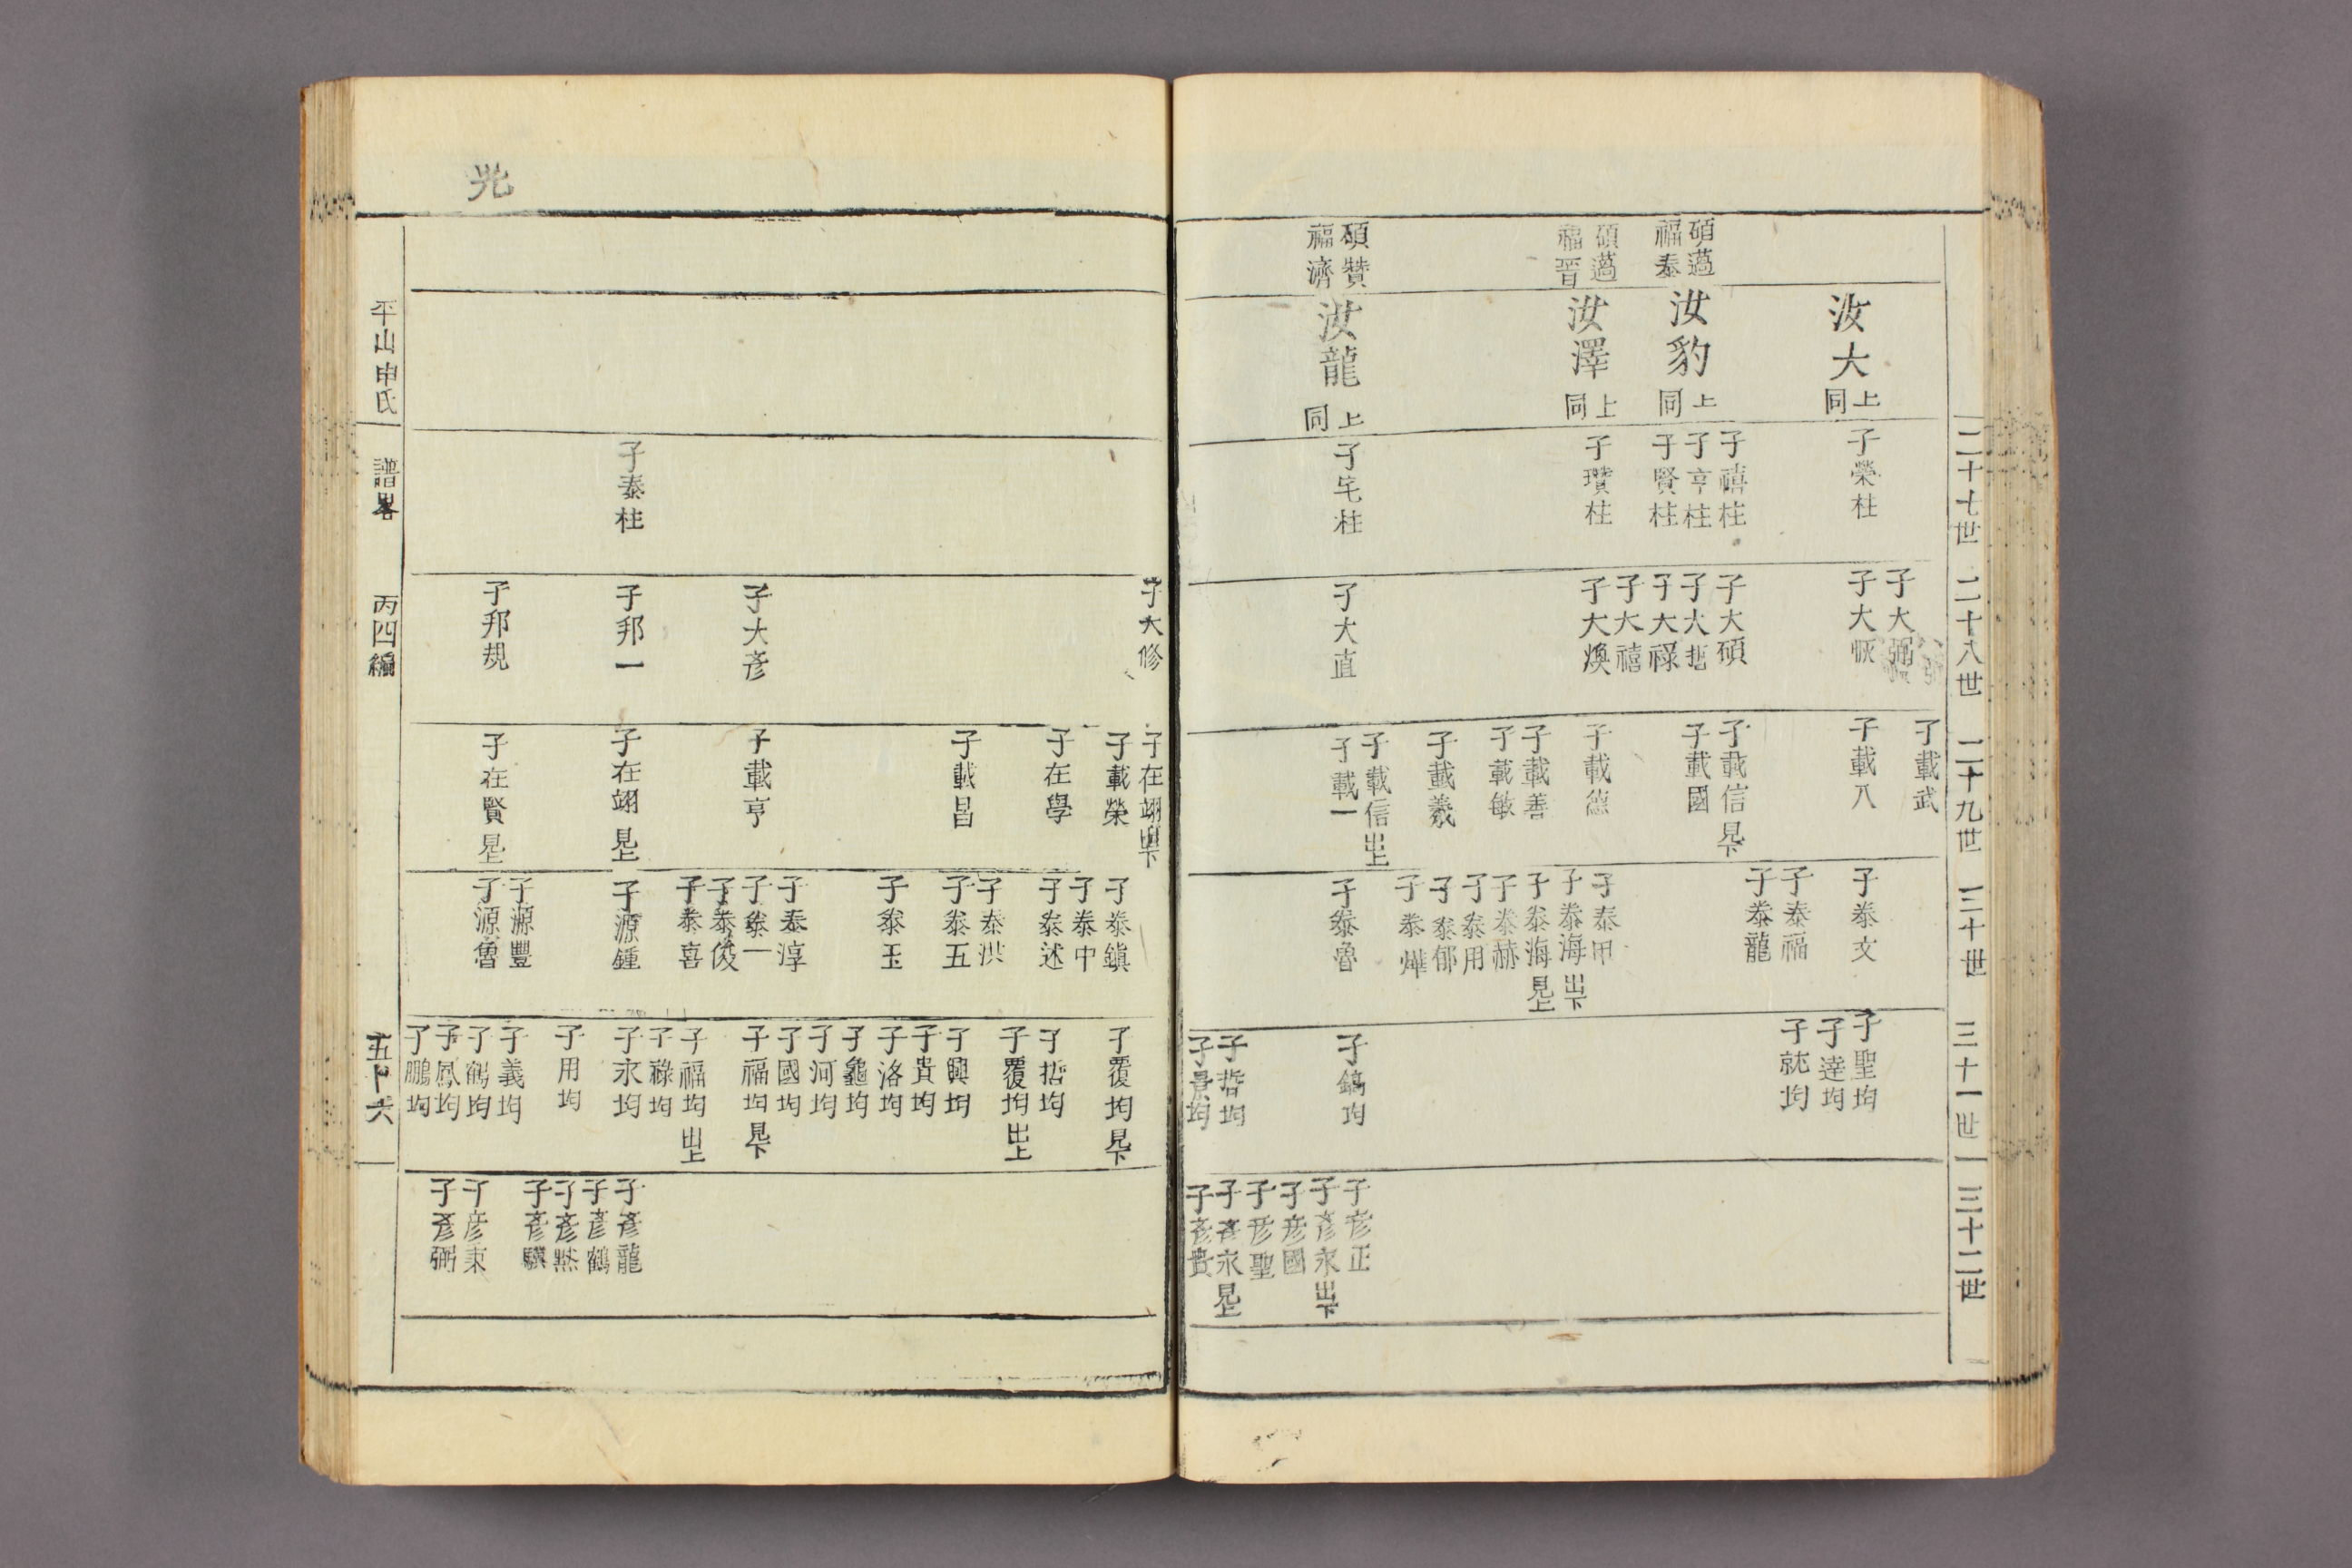 二十七世
二十八世
二十九世
三十世
三十一世
三十二世
碩邁
福泰
碩邁
福晋
碩贊
福濟
汝大 上同
汝豹 上同
汝澤 上同
汝龍 上同
子榮柱
子禧柱
子亨柱
子賢柱
子瓚柱
子宅柱
子大弼
子大恢
子大碩
子大哲
子大祿
子大禧
子大煥
子大直
子載武
子載八
子載信見下
子載國
子載德
子載善
子載敏
子載羲
子載信出上
子載一
子泰文
子泰福
子泰龍
子泰甲
子泰海出下
子泰海見上
子泰赫
子泰用
子泰郁
子泰燁
子泰魯
子聖均
子達均
子就均
子鎬均
子哲均
子景均
子彦正
子彦永出下
子彦國
子彦聖
子彦永見上
子彦貴
光
子泰柱
子大修
子大彦
子邦一
子邦規
子在翊見下
子載榮
子在學
子載昌
子載亨
子在翊見上
子在賢見上
子泰鎭
子泰中
子泰述
子泰洪
子泰五
子泰玉
子泰淳
子泰一
子泰俊
子泰喜
子源鍾
子源豐
子源魯
子覆均見下
子哲均
子覆均出上
子興均
子貴均
子洛均
子龜均
子河均
子國均
子福均見下
子福均出上
子祿均
子永均
子用均
子義均
子鶴均
子鳳均
子鵬均
子彦龍
子彦鶴
子彦默
子彦驥
子彦秉
子彦弼
平山申氏
譜畧
丙四編
五十六